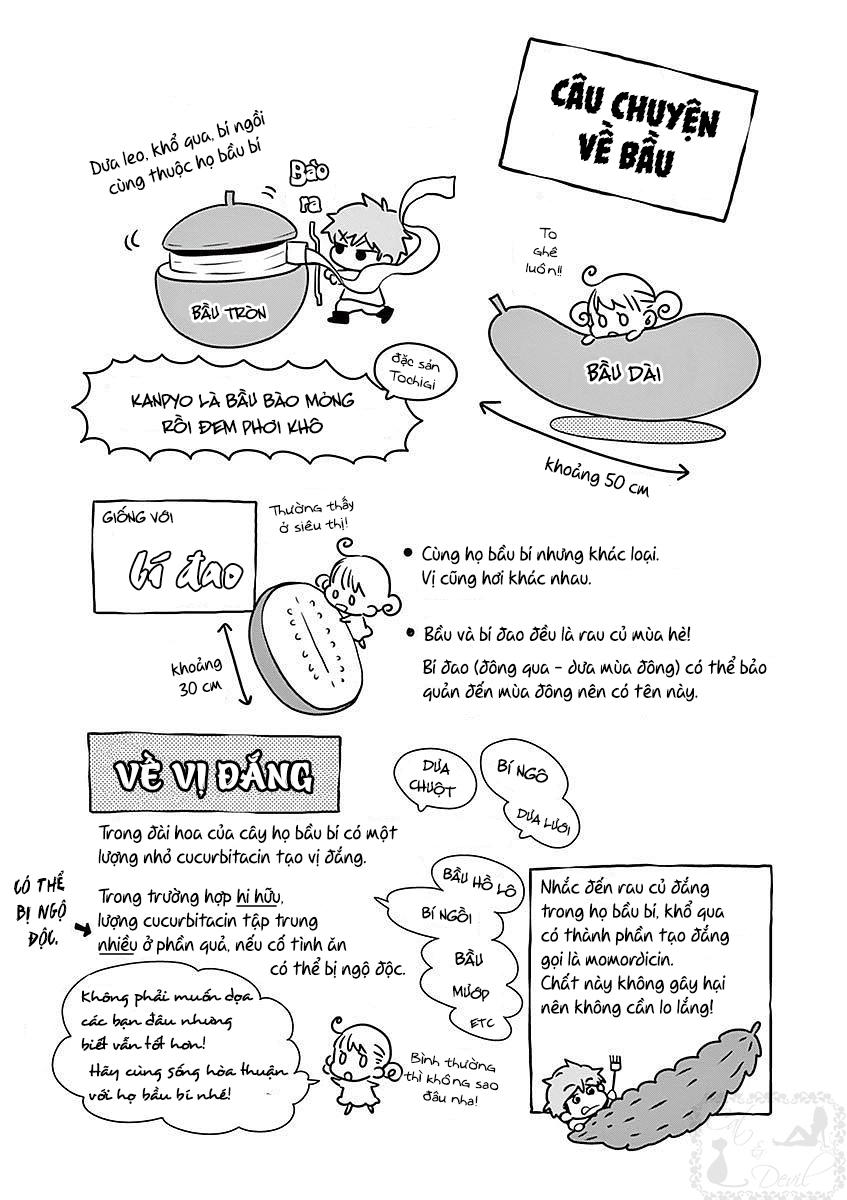 CÂU CHUYỆN
VỀ BẦU
Dưa leo, khổ qua, bí ngồi
cùng thuộc họ bầu bí
Bào
ra
BẦU TRÒN
To
ghê
luôn!!
BẦU DÀI
khoảng 50 cm
đặc sản
Tochigi
KANPYO LÀ BẦU BÀO MỎNG
RỒI ĐEM PHƠI KHÔ
GIỐNG VỚI
bí đao
Thường thấy
ở siêu thị!
khoảng
30 cm
• Cùng họ bầu bí nhưng khác loại.
Vị cũng hơi khác nhau.
• Bầu và bí đao đều là rau củ mùa hè!
Bí đao (đông qua - dưa mùa đông) có thể bảo
quản đến mùa đông nên có tên này.
VỀ VỊ ĐẮNG
Trong đài hoa của cây họ bầu bí có một
lượng nhỏ cucurbitacin tạo vị đắng.
CÓ THỂ
BỊ NGỘ
ĐỘC.
Trong trường hợp hi hữu,
lượng cucurbitacin tập trung
nhiều ở phần quả, nếu cố tình ăn
có thể bị ngộ độc.
DƯA
CHUỘT
BÍ NGÔ
DƯA LƯỚI
BẦU HỒ LÔ
BÍ NGỒI
BẦU
MƯỚP
ETC
Nhắc đến rau củ đắng
trong họ bầu bí, khổ qua
có thành phần tạo đắng
gọi là momordicin.
Chất này không gây hại
nên không cần lo lắng!
Không phải muốn dọa
các bạn đâu nhưng
biết vẫn tốt hơn!
Hãy cùng sống hòa thuận
với họ bầu bí nhé!
Bình thường
thì không sao
đâu nha!
Cat
&
Devil